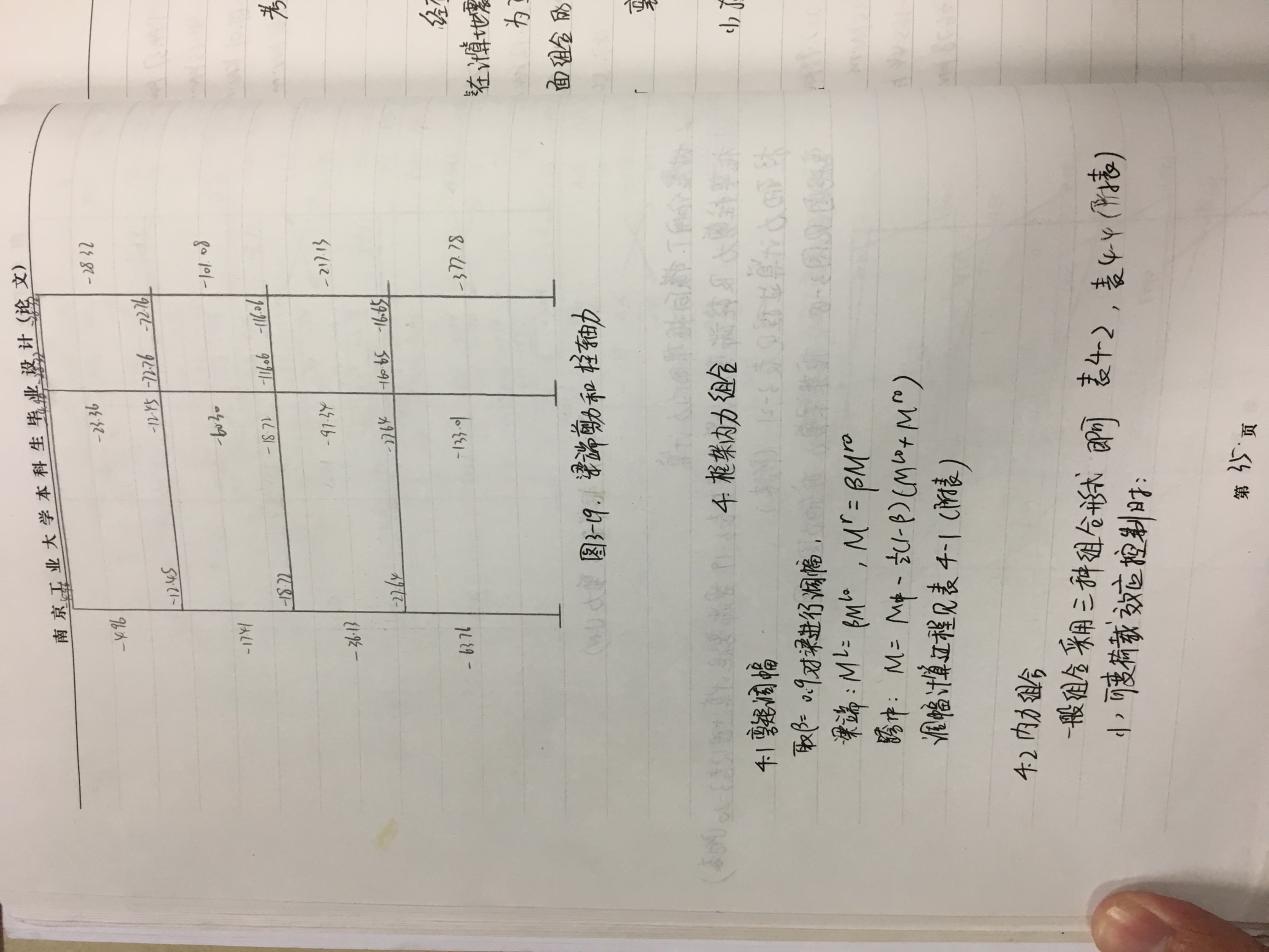 南京工业大学本科生毕业设计(论文)
-4.96 -23.36 -28.32
-12.45 -12.45 -72.76 -72.76
-17.41 -60.30 -101.08
-18.72 -18.72 -116.06 -116.06
-36.13 -97.24 -217.13
-27.64 -27.64 -160.65 -160.65
-63.76 -133.01 -377.78
图3-19. 梁端剪力和柱轴力
4. 框架内力组合
4.1 弯矩调幅
取β=0.9对梁进行调幅,
梁端: Mᴸ= βMᴸ⁰, Mʳ= βMʳ⁰
跨中: M= M中 - ½(1-β)(Mᴸ⁰+Mʳ⁰)
调幅计算过程见表4-1(附表)
4.2 内力组合
一般组合采用三种组合形式 即可 表4-2, 表4-4(附表)
1, 可变荷载效应控制时:
第 35. 页
经
为
表在计算地震
面组合的
考